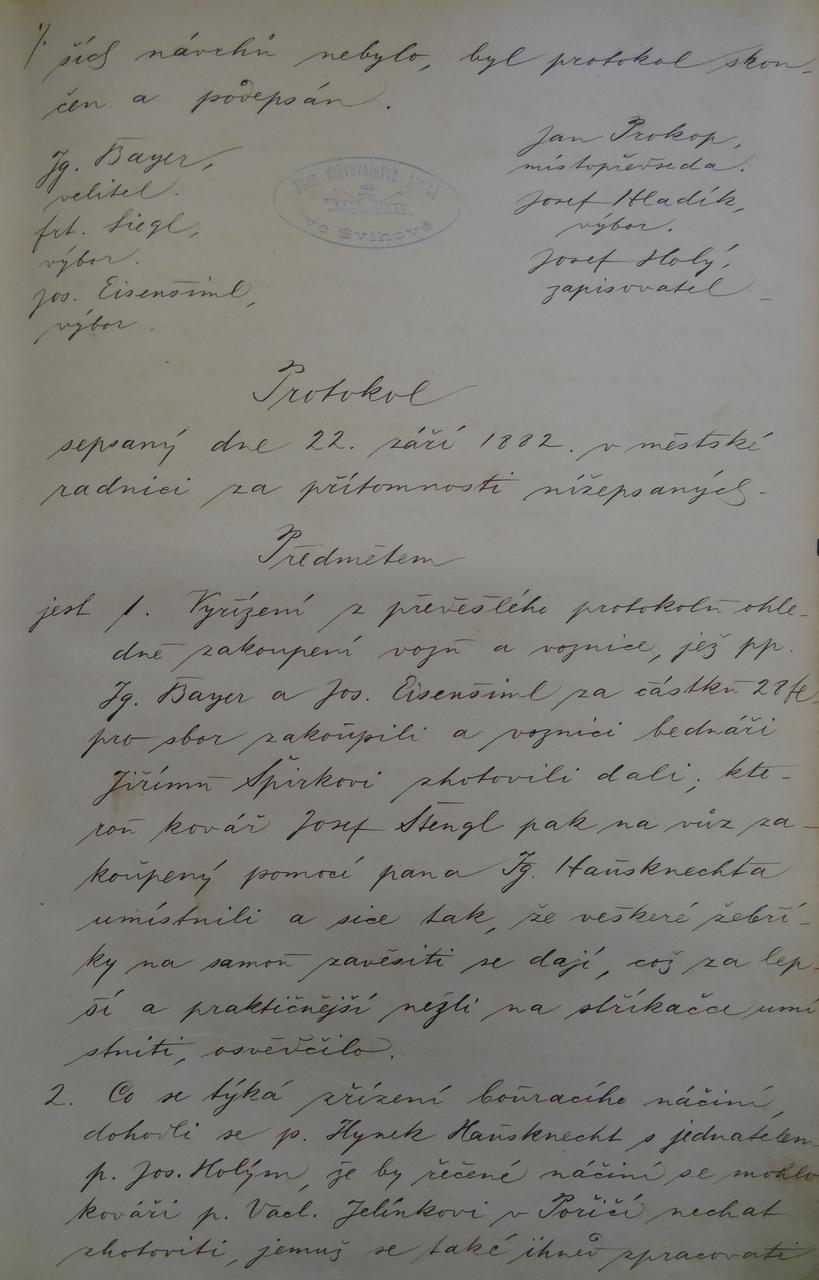 ších návrhů nebylo, byl protokol skon-
čen a podepsán.
Jg. Bayer,
velitel.
frt. Siegl,
výbor.
Jos. Eisenšiml,
výbor.
Sbor dobrovolných hasičů
ve Svinově
Jan Prokop,
místopředseda.
Josef Hladík,
výbor.
Josef Holý,
zapisovatel
Protokol
sepsaný dne 22. září 1882. v městské
radnici za přítomnosti nížepsaných.
Předmětem
jest 1. Vyřízení z převešlého protokolu ohle-
dně zakoupení vozu a voznice, jež pp.
Jg. Bayer a Jos. Eisenšiml za částku 28 fl.
pro sbor zakoupili a voznici bednáři
Jiřímu Špirkovi zhotovili dali; kte-
rou kovář Josef Stengl pak na vůz za-
koupený pomocí pana Jg. Hausknechta
umístnili a sice tak, že veškeré žebří-
ky na samou zavěsiti se dají, což za lep-
ší a praktičnější nežli na stříkačce umí
stniti, osvědčilo.
2. Co se týká zřízení bouracího náčiní,
dohodli se p. Hynek Hausknecht s jednatelem
p. Jos. Holým, že by řečené náčiní se mohlo
kováři p. Vacl. Jelínkovi v Poříčí nechat
zhotoviti, jemuž se také ihned zpracovati